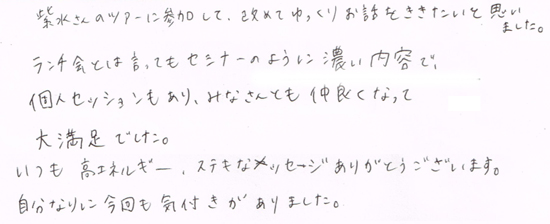 紫水さんのツアーに参加して、改めてゆっくりお話をききたいと思い
ました。
ランチ会とは言ってもセミナーのように濃い内容で、
個人セッションもあり、みなさんとも仲良くなって
大満足でした。
いつも高エネルギー、ステキなメッセージありがとうございます。
自分なりに今回も気付きがありました。